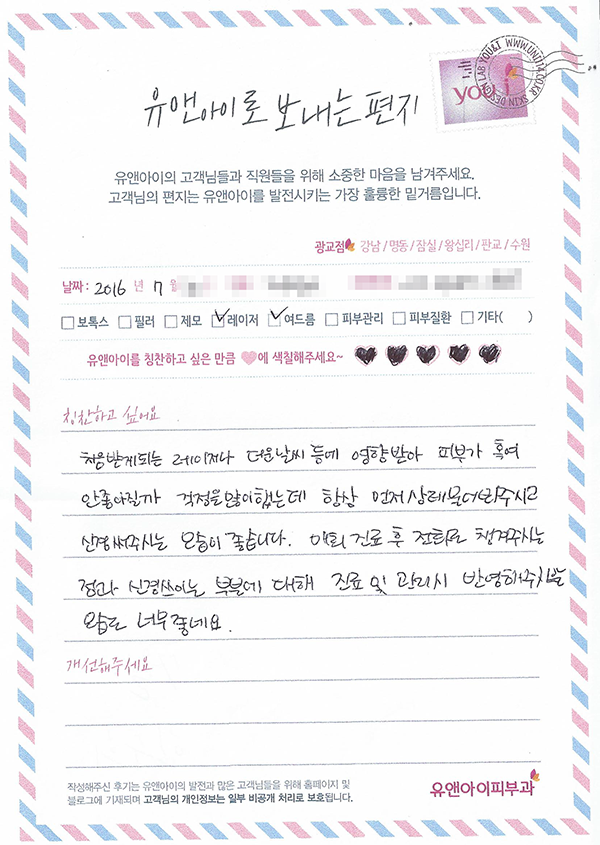 SKIN DESIGN LAB YOU&I WWW.UNI114.CO.KR
you i
유앤아이로 보내는 편지
유앤아이의 고객님들과 직원들을 위해 소중한 마음을 남겨주세요.
고객님의 편지는 유앤아이를 발전시키는 가장 훌륭한 밑거름입니다.
광교점 강남 / 명동 / 잠실 / 왕십리 / 판교 / 수원
날짜 : 2016 년 7 월
보톡스 필러 제모 레이저 여드름 피부관리 피부질환 기타( )
유앤아이를 칭찬하고 싶은 만큼 에 색칠해주세요~
칭찬하고 싶어요
처음받게되는 레이저나 더운날씨 등에 영향받아 피부가 혹여
안좋아질까 걱정을많이했는데 항상 먼저 상태물어봐주시고
신경써주시는 모습이 좋습니다. 매회 진료 후 전화로 챙겨주시는
점과 신경쓰이는 부분에 대해 진료 및 관리시 반영해주시는
모습도 너무 좋네요.
개선해주세요
작성해주신 후기는 유앤아이의 발전과 많은 고객님들을 위해 홈페이지 및
블로그에 기재되며 고객님의 개인정보는 일부 비공개 처리로 보호됩니다.
유앤아이피부과